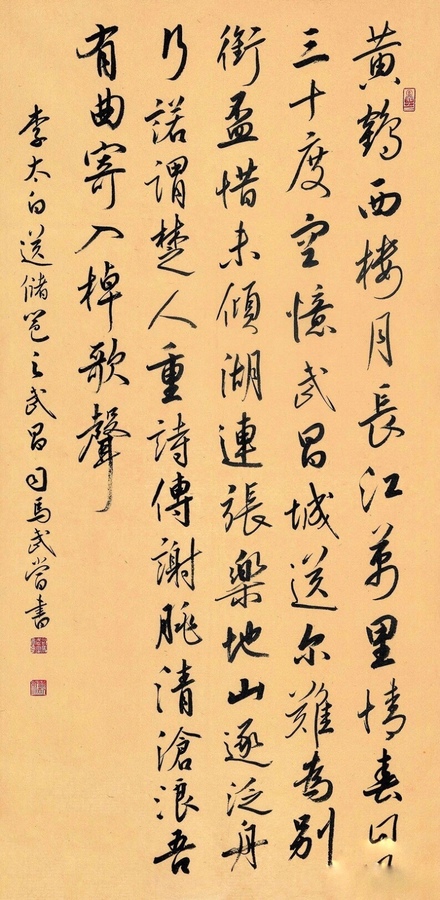 黃鶴西樓月長江萬里情春
三十度空憶武昌城送尔難為別
銜盃惜未傾湖連張樂地山逐泛舟
行諾謂楚人重詩傳謝朓清滄浪吾
有曲寄入棹歌聲
李太白送儲邕之武昌司馬武當書